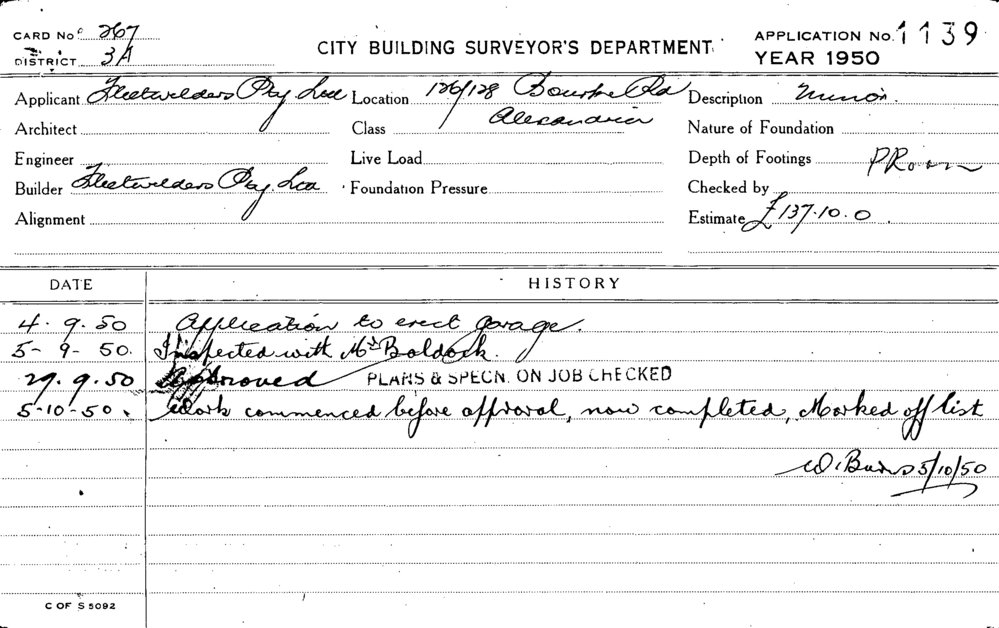 CARD No. 267
DISTRICT 3A
CITY BUILDING SURVEYOR'S DEPARTMENT.
APPLICATION No. 1139
YEAR 1950
Applicant Fleetwelders Pty Ltd Location 126/128 Bourke Rd Description Minor.
Architect Class Alexandria Nature of Foundation
Engineer Live Load Depth of Footings
Builder Fleetwelders Pty Ltd Foundation Pressure Checked by
Alignment Estimate £137.10.0
DATE HISTORY
4. 9. 50 Application to erect garage.
5- 9- 50. Inspected with Mr Baldock.
29. 9. 50 Approved PLANS & SPECN. ON JOB CHECKED
5-10-50. Work commenced before approval, now completed, Marked off list
W. Burns 5/10/50
C OF S 5092